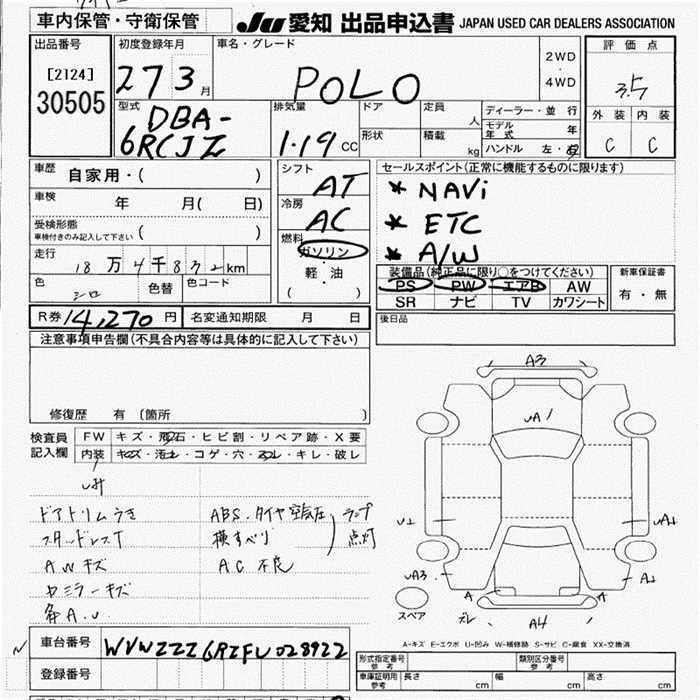 車内保管・守衛保管
JU 愛知 出品申込書 JAPAN USED CAR DEALERS ASSOCIATION
出品番号
[2124]
30505
初度登録年月
27 3 月
車名・グレード
POLO
2WD
・
4WD
評価点
3.5
外装 内装
C C
型式
DBA-
6RCJZ
排気量
1.19 CC
ドア 定員 人
形状 積載 kg
ディーラー・並行
モデル年式 年
ハンドル 左・右
車歴 自家用・( )
車検 年 月( 日)
受検形態
車検付きのみ記入して下さい ( )
走行 18万4千832km
色 シロ 色替 色コード
シフト AT
冷房 AC
燃料 ガソリン
・
軽・油
( )
セールスポイント(正常に機能するものに限ります)
* NAVi
* ETC
* A/W
装備品(純正品に限り○をつけてください)
PS PW エアB AW
SR ナビ TV カワシート
新車保証書
有・無
後日品
R券 14,270 円 名変通知期限 月 日
注意事項申告欄(不具合内容等は具体的に記入して下さい)
修復歴 有 (箇所 )
検査員記入欄
FW キズ・飛石・ヒビ割・リペア跡・X要
内装 キズ・汚れ・コゲ・穴・スレ・キレ・破レ
ドアトリムうき
スタッドレスT
AWキズ
ABS・タイヤ空気圧
横すべり
ランプ
点灯
AC 不良
ドミラーキズ
各A.U
A3
UA1
U1
UA1
UA3
A
A1
A
A4
スペア
A-キズ E-エクボ U-凹み W-補修跡 S-サビ C-腐食 XX-交換済
車台番号 WVWZZZ6RZFU028922
登録番号
形式指定番号 参考
類別区分番号 参考
車庫証明用 参考 長さ cm 幅 cm 高さ cm